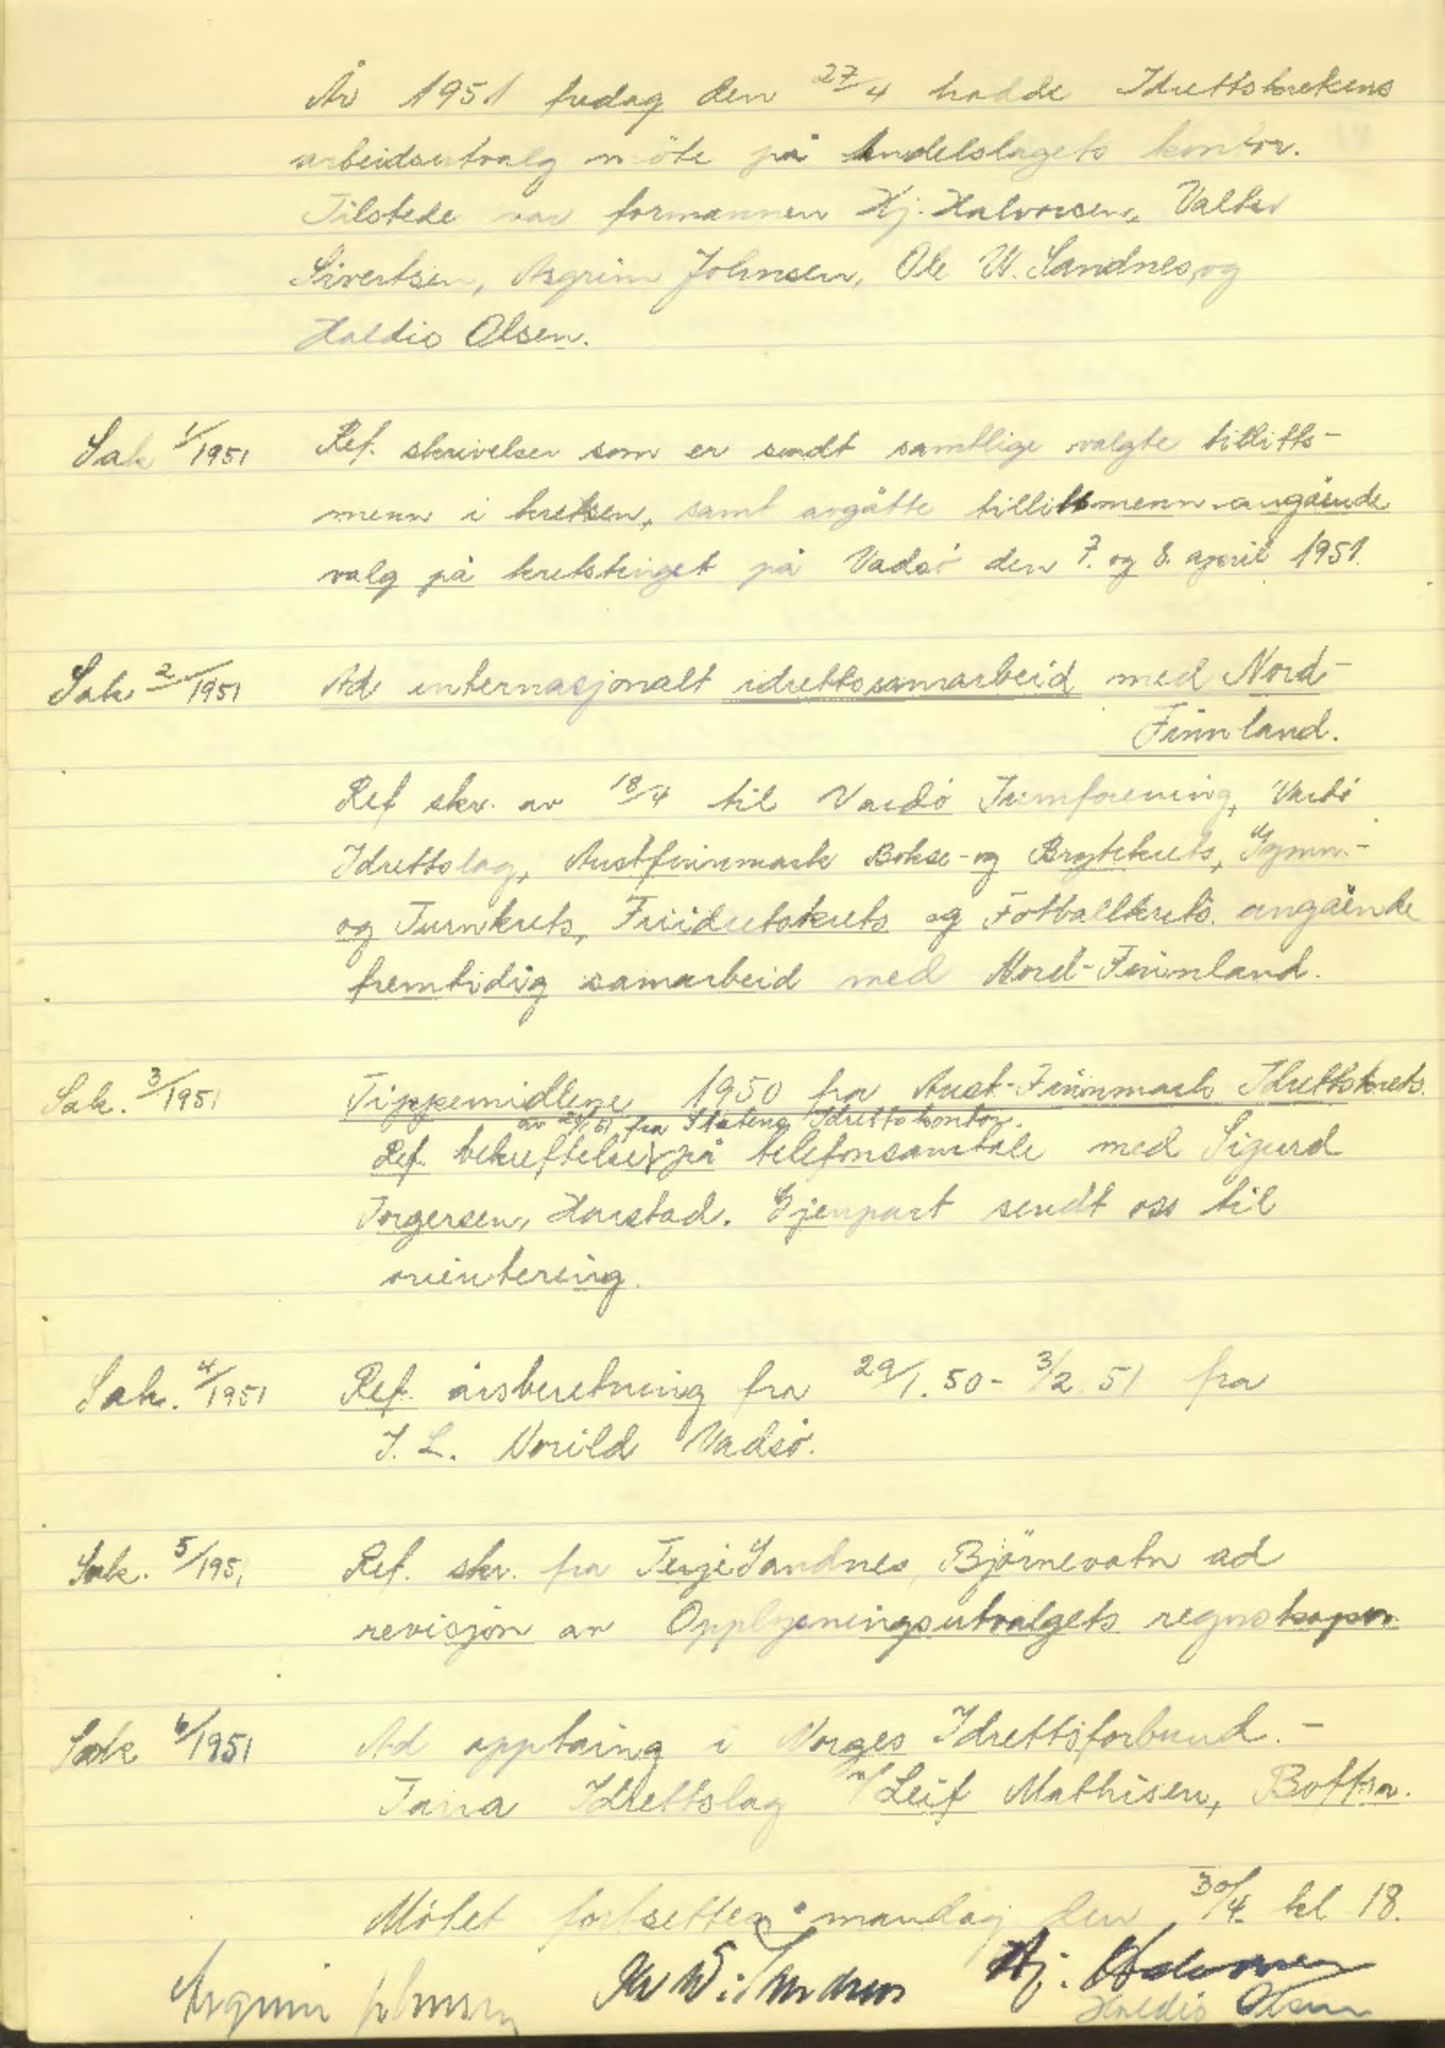 År 1951 fredag den 27/4 hadde Idrettskretsens
arbeidsutvalg möte på Andelslagets kontor.
Tilstede var formannen Hj. Halvorsen, Valter
Sivertsen, Asgrim Johnsen, Ole W. Sandnes, og
Haldis Olsen.
Sak 1/1951 Ref. skrivelser som er sendt samtlige valgte tillits-
menn i kretsen, samt avgåtte tillitsmenn angående
valg på kretstinget på Vadsö den 7. og 8. april 1951.
Sak 2/1951 Ad internasjonalt idrettssamarbeid med Nord-
Finnland.
Ref skr. av 18/4 til Vardö Turnforening, Vardö
Idrettslag, Austfinnmark Bokse- og Brytekrets, Gymn.-
og Turnkrets, Friidretskrets og Fotballkrets angående
fremtidig samarbeid med Nord-Finnland.
Sak. 3/1951 Tippemidlene 1950 fra Aust-Finnmark Idrettskrets.
fra Statens Idrettskontor.
Ref. bekreftelse på telefonsamtale med Sigurd
Torgersen, Harstad. Gjenpart sendt oss til
orientering.
Sak. 4/1951 Ref. årsberetning fra 29/1. 50 - 3/2 51 fra
I. L. Norild Vadsö.
Sak. 5/1951 Ref. skr. fra Terje Sandnes, Björnevatn ad
revisjon av Opplysningsutvalgets regnskaper
Sak 6/1951 Ad opptaing i Norges Idrettsforbund. -
Tana Idrettslag v/ Leif Mathisen, Boftsa.
Mötet fortsetter mandag den 30/4. kl 18.
Asgrim Johnsen Ole W. Sandnes Hj. Halvorsen
Haldis Olsen